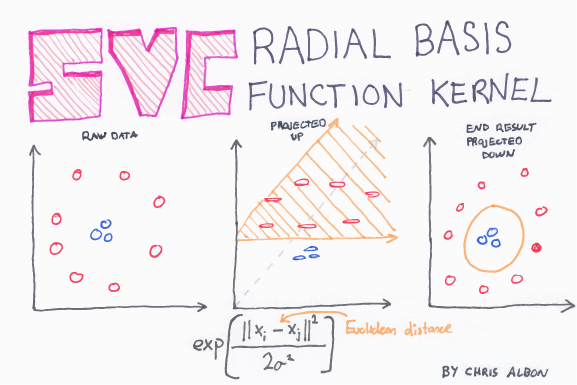 SVC RADIAL BASIS
FUNCTION KERNEL
RAW DATA
PROJECTED
UP
END RESULT
PROJECTED
DOWN
exp(||xᵢ - xⱼ||² / 2σ²)
Euclidean distance
BY CHRIS ALBON